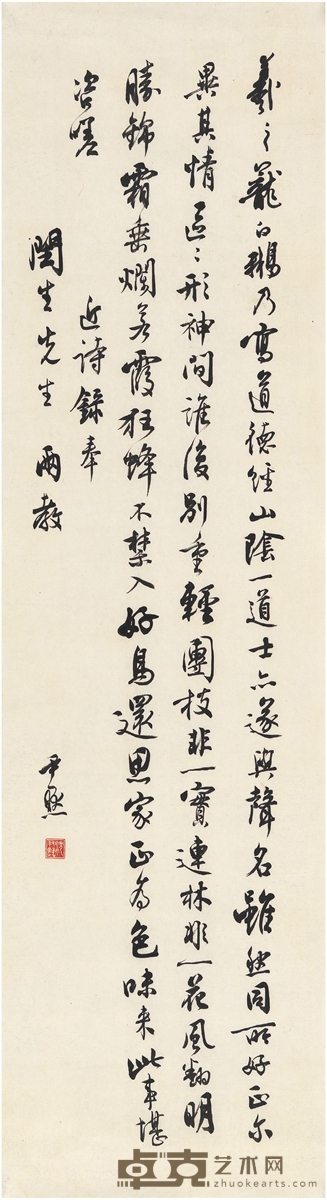 羲之籠白鵝乃寫道德經山陰一道士亦遂與聲名雖然同所好正尔
異其情區〻形神間誰復別重輕團枝非一實連林非一花風翻明
勝錦霜垂爛若霞狂蜂不禁入好鳥還思家正為色味来此事堪
咨嗟
近詩錄奉
閏生先生 兩教
尹默
卓克艺术网
www.zhuokearts.com